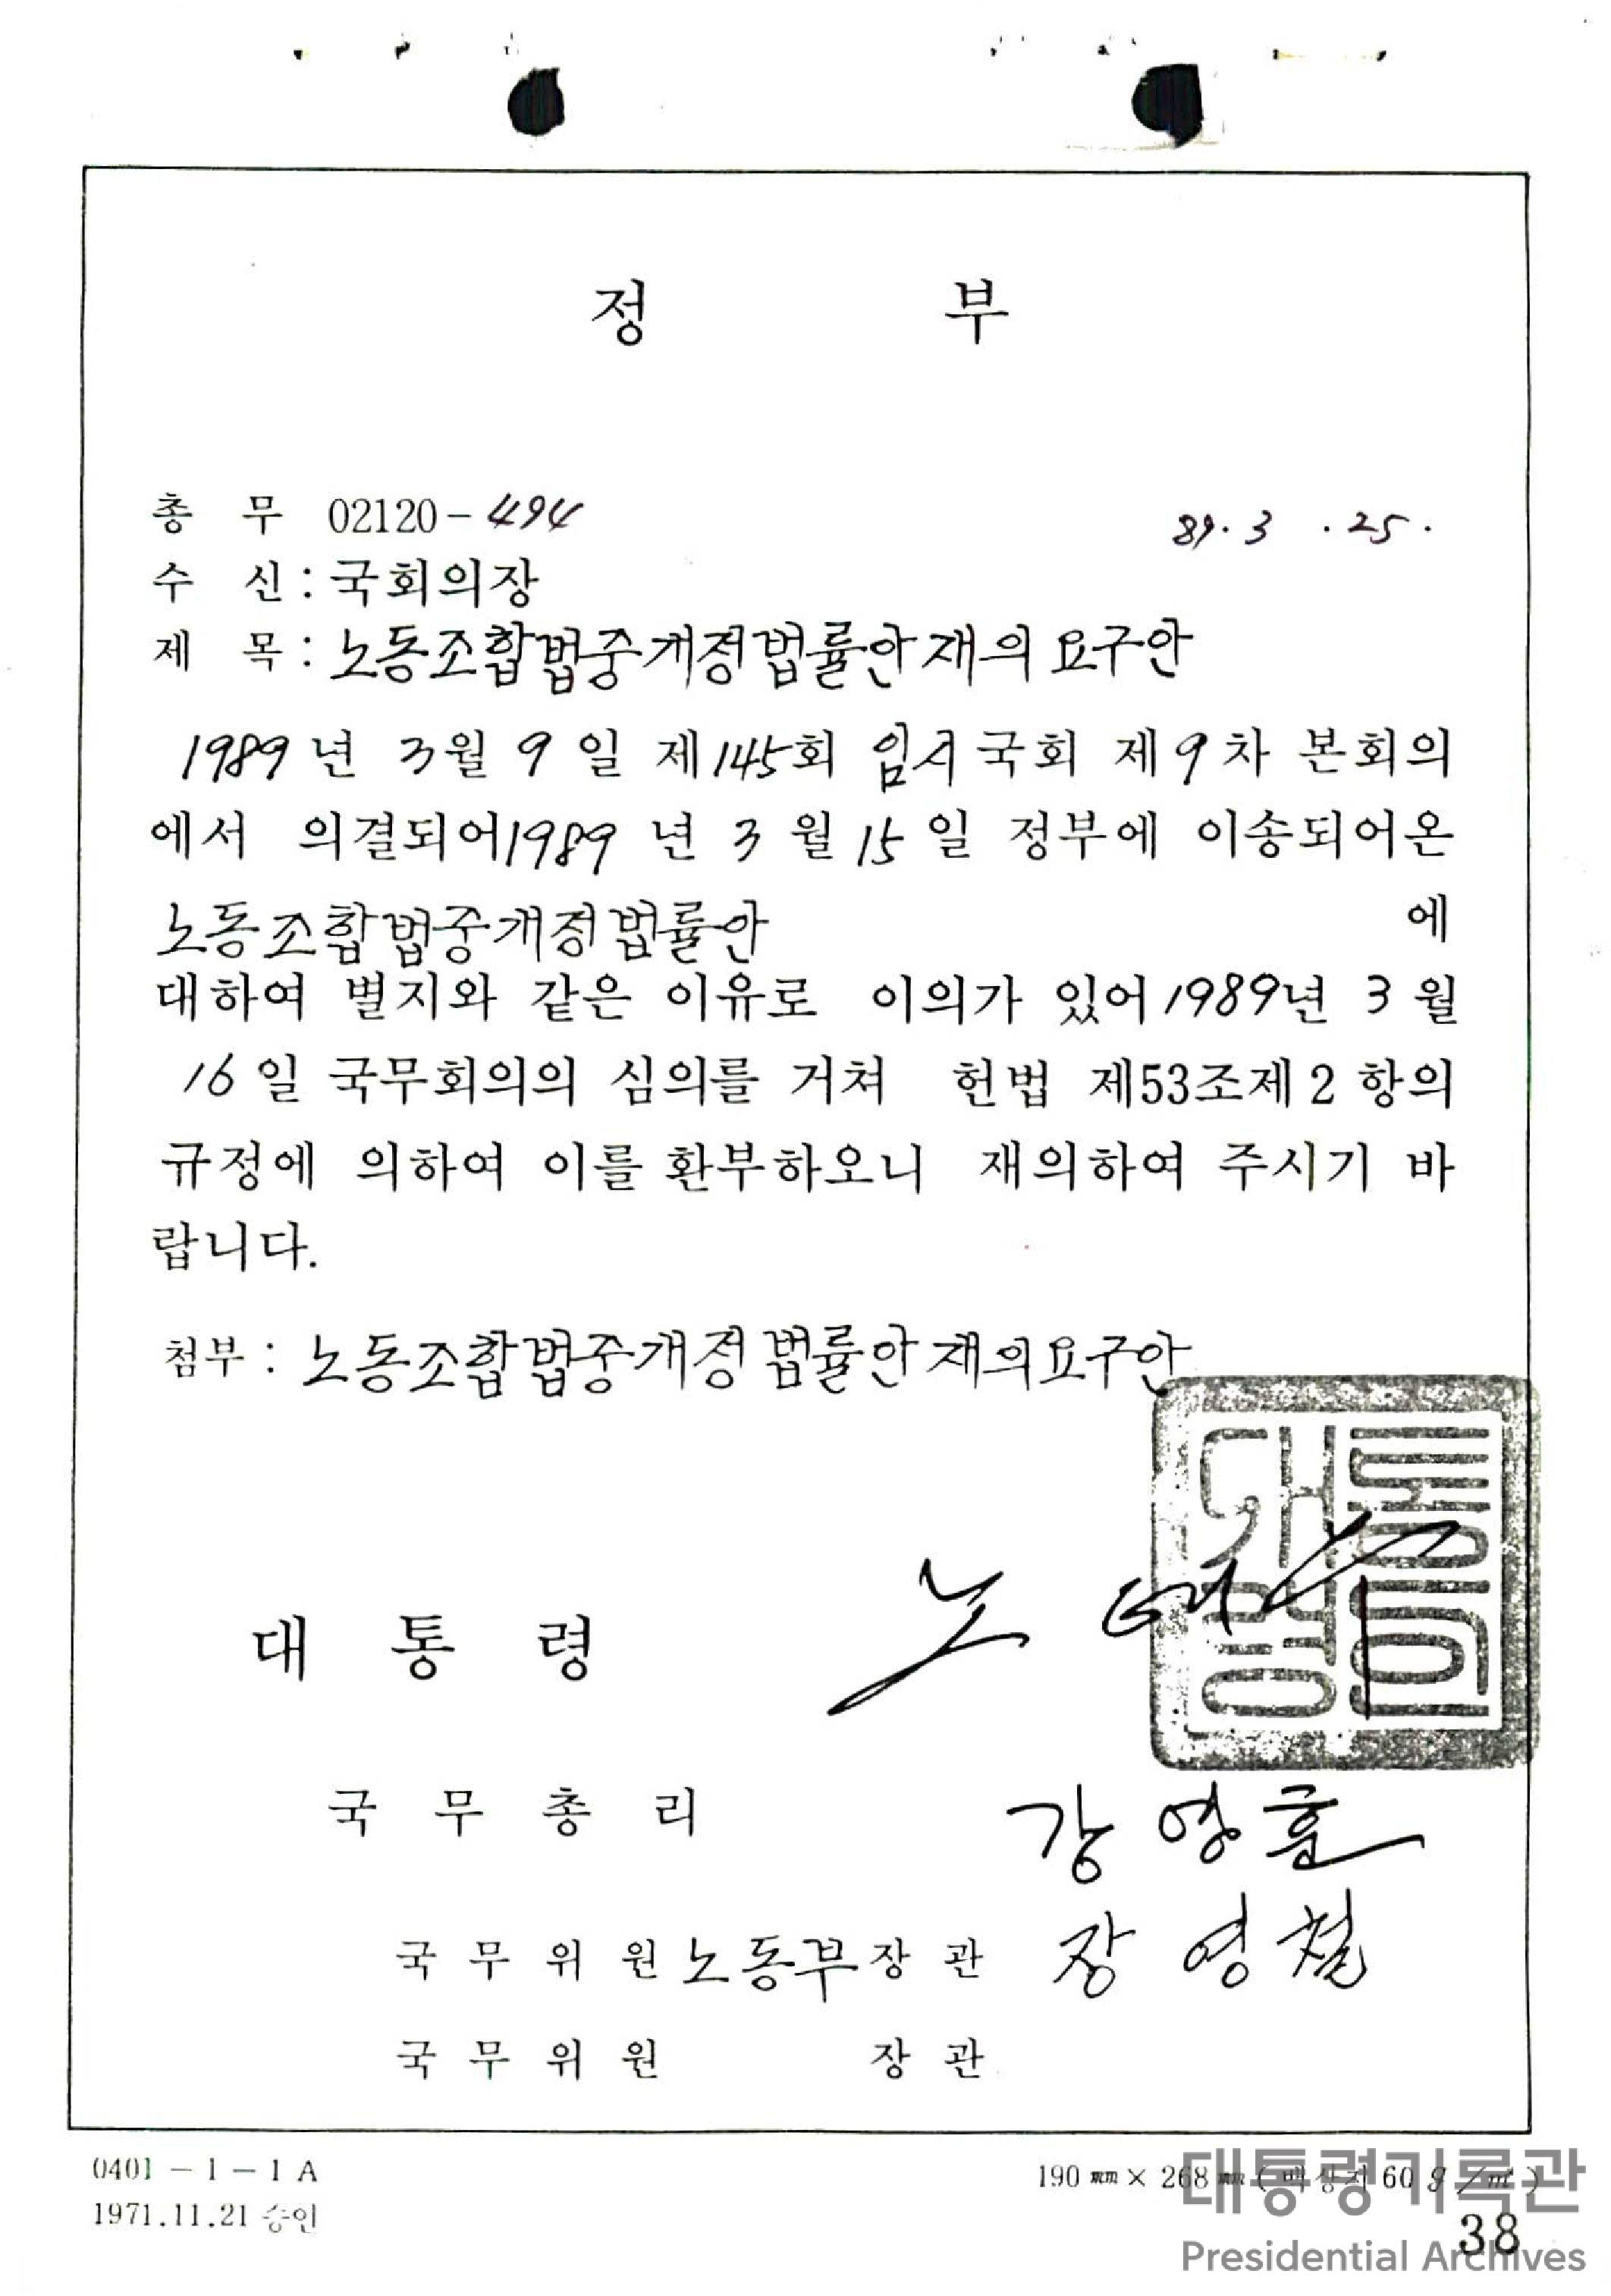 정 부
총 무 02120-494 89. 3 . 25 .
수 신 : 국회의장
제 목 : 노동조합법중개정법률안재의요구안
1989 년 3 월 9 일 제 145 회 임시 국회 제 9 차 본회의
에서 의결되어 1989 년 3 월 15 일 정부에 이송되어온
노동조합법중개정법률안 에
대하여 별지와 같은 이유로 이의가 있어 1989년 3 월
16 일 국무회의의 심의를 거쳐 헌법 제53조제 2 항의
규정에 의하여 이를 환부하오니 재의하여 주시기 바
랍니다.
첨부 : 노동조합법중개정법률안재의요구안
대통령의
대 통 령 노
국 무 총 리 강영훈
국 무 위 원 노동부 장 관 장영철
국 무 위 원 장 관
0401 - 1 - 1 A 190 ㎜ × 268 ㎜ ( 백상지 60 g /㎡ )
1971.11.21 승인
대통령기록관
38
Presidential Archives